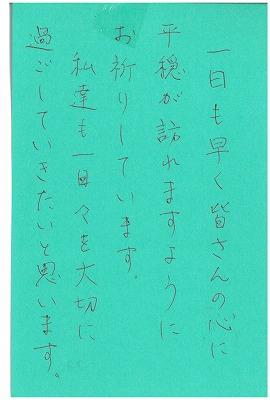 一日も早く皆さんの心に
平穏が訪れますように
お祈りしています。
私達も一日々を大切に
過ごしていきたいと思います。